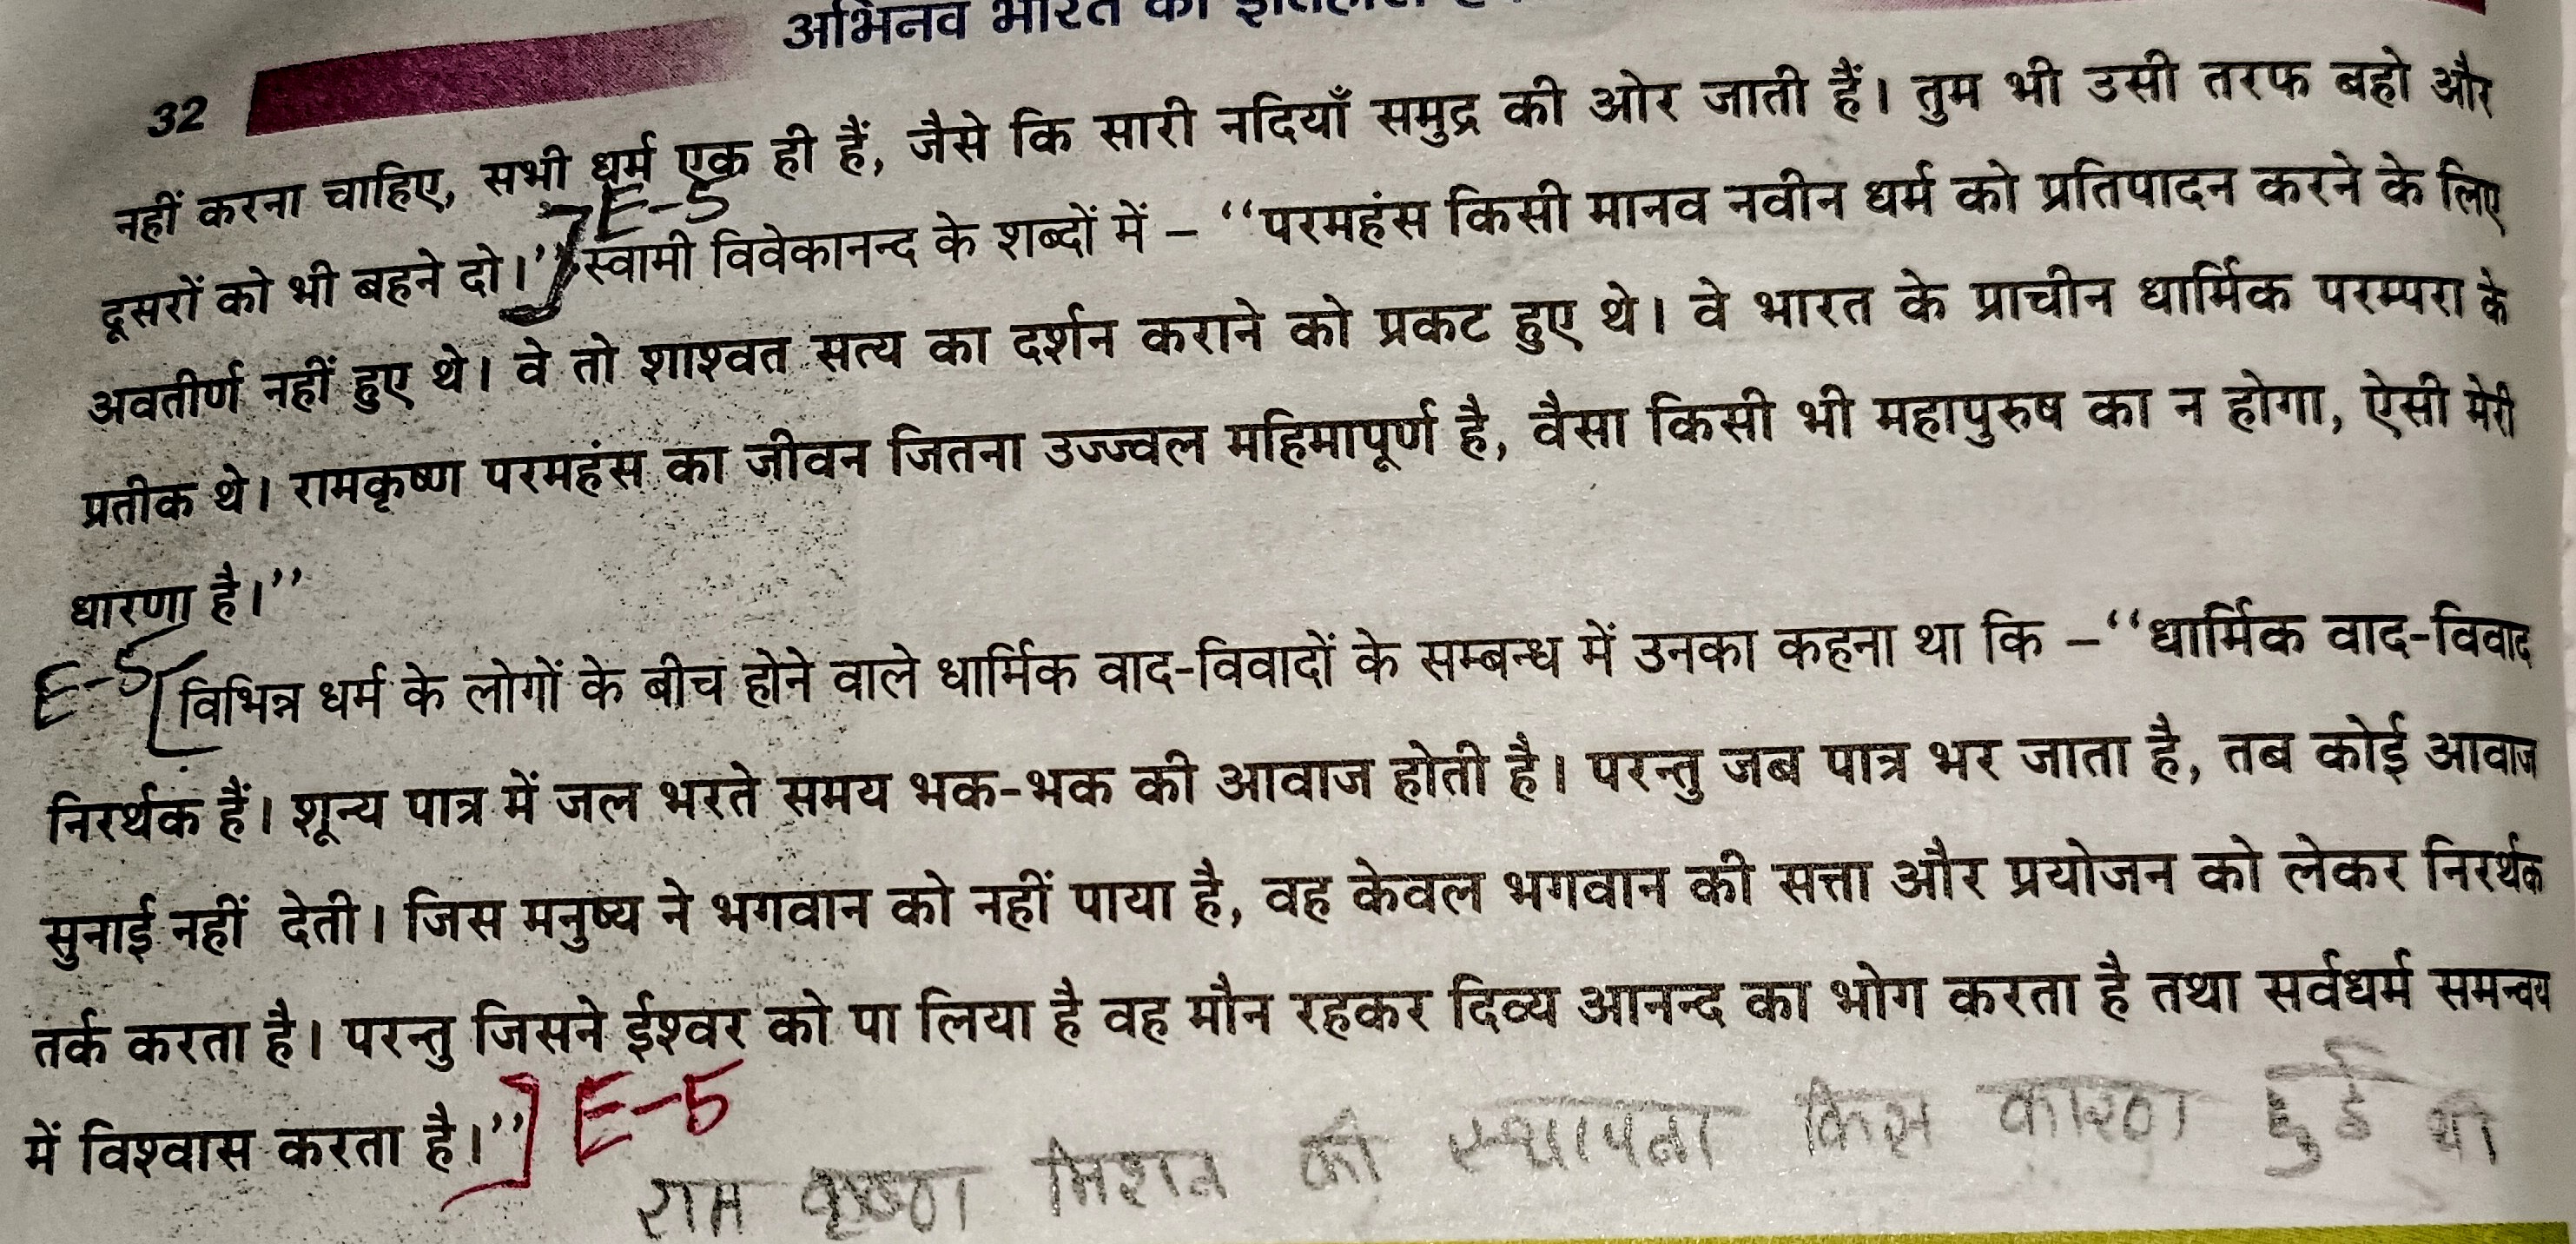 अभिनव भारत का इतिहास
32
नहीं करना चाहिए, सभी धर्म एक ही हैं, जैसे कि सारी नदियाँ समुद्र की ओर जाती हैं। तुम भी उसी तरफ बहो और
E-5
दूसरों को भी बहने दो।'' स्वामी विवेकानन्द के शब्दों में – ‘‘परमहंस किसी मानव नवीन धर्म को प्रतिपादन करने के लिए
अवतीर्ण नहीं हुए थे। वे तो शाश्वत सत्य का दर्शन कराने को प्रकट हुए थे। वे भारत के प्राचीन धार्मिक परम्परा के
प्रतीक थे। रामकृष्ण परमहंस का जीवन जितना उज्ज्वल महिमापूर्ण है, वैसा किसी भी महापुरुष का न होगा, ऐसी मेरी
धारणा है।’’
E-5
[विभिन्न धर्म के लोगों के बीच होने वाले धार्मिक वाद-विवादों के सम्बन्ध में उनका कहना था कि –‘‘धार्मिक वाद-विवाद
निरर्थक हैं। शून्य पात्र में जल भरते समय भक-भक की आवाज होती है। परन्तु जब पात्र भर जाता है, तब कोई आवाज
सुनाई नहीं देती। जिस मनुष्य ने भगवान को नहीं पाया है, वह केवल भगवान की सत्ता और प्रयोजन को लेकर निरर्थक
तर्क करता है। परन्तु जिसने ईश्वर को पा लिया है वह मौन रहकर दिव्य आनन्द का भोग करता है तथा सर्वधर्म समन्वय
में विश्वास करता है।’’] E-5
राम कृष्ण मिशन की स्थापना किस कारण हुई थी